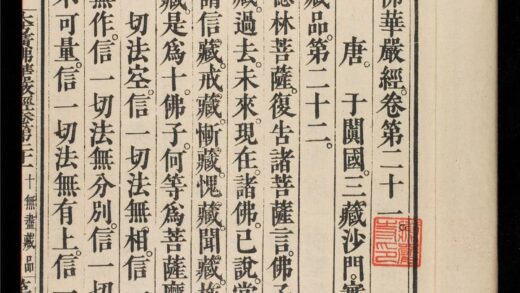 佛華嚴經卷第二十一
唐。于闐國。三藏沙門。實
藏品。第二十二。
德林菩薩。復告諸菩薩言。佛子
藏。過去未來現在諸佛。已說當
謂信藏。戒藏。慚藏。愧藏。聞藏。施
藏。是爲十。佛子。何等爲菩薩摩
一切法空。信一切法無相。信一
無作。信一切法無分別。信一切
不可量。信一切法無有上。信一
大方廣佛華嚴經卷第二十一 十無盡藏品